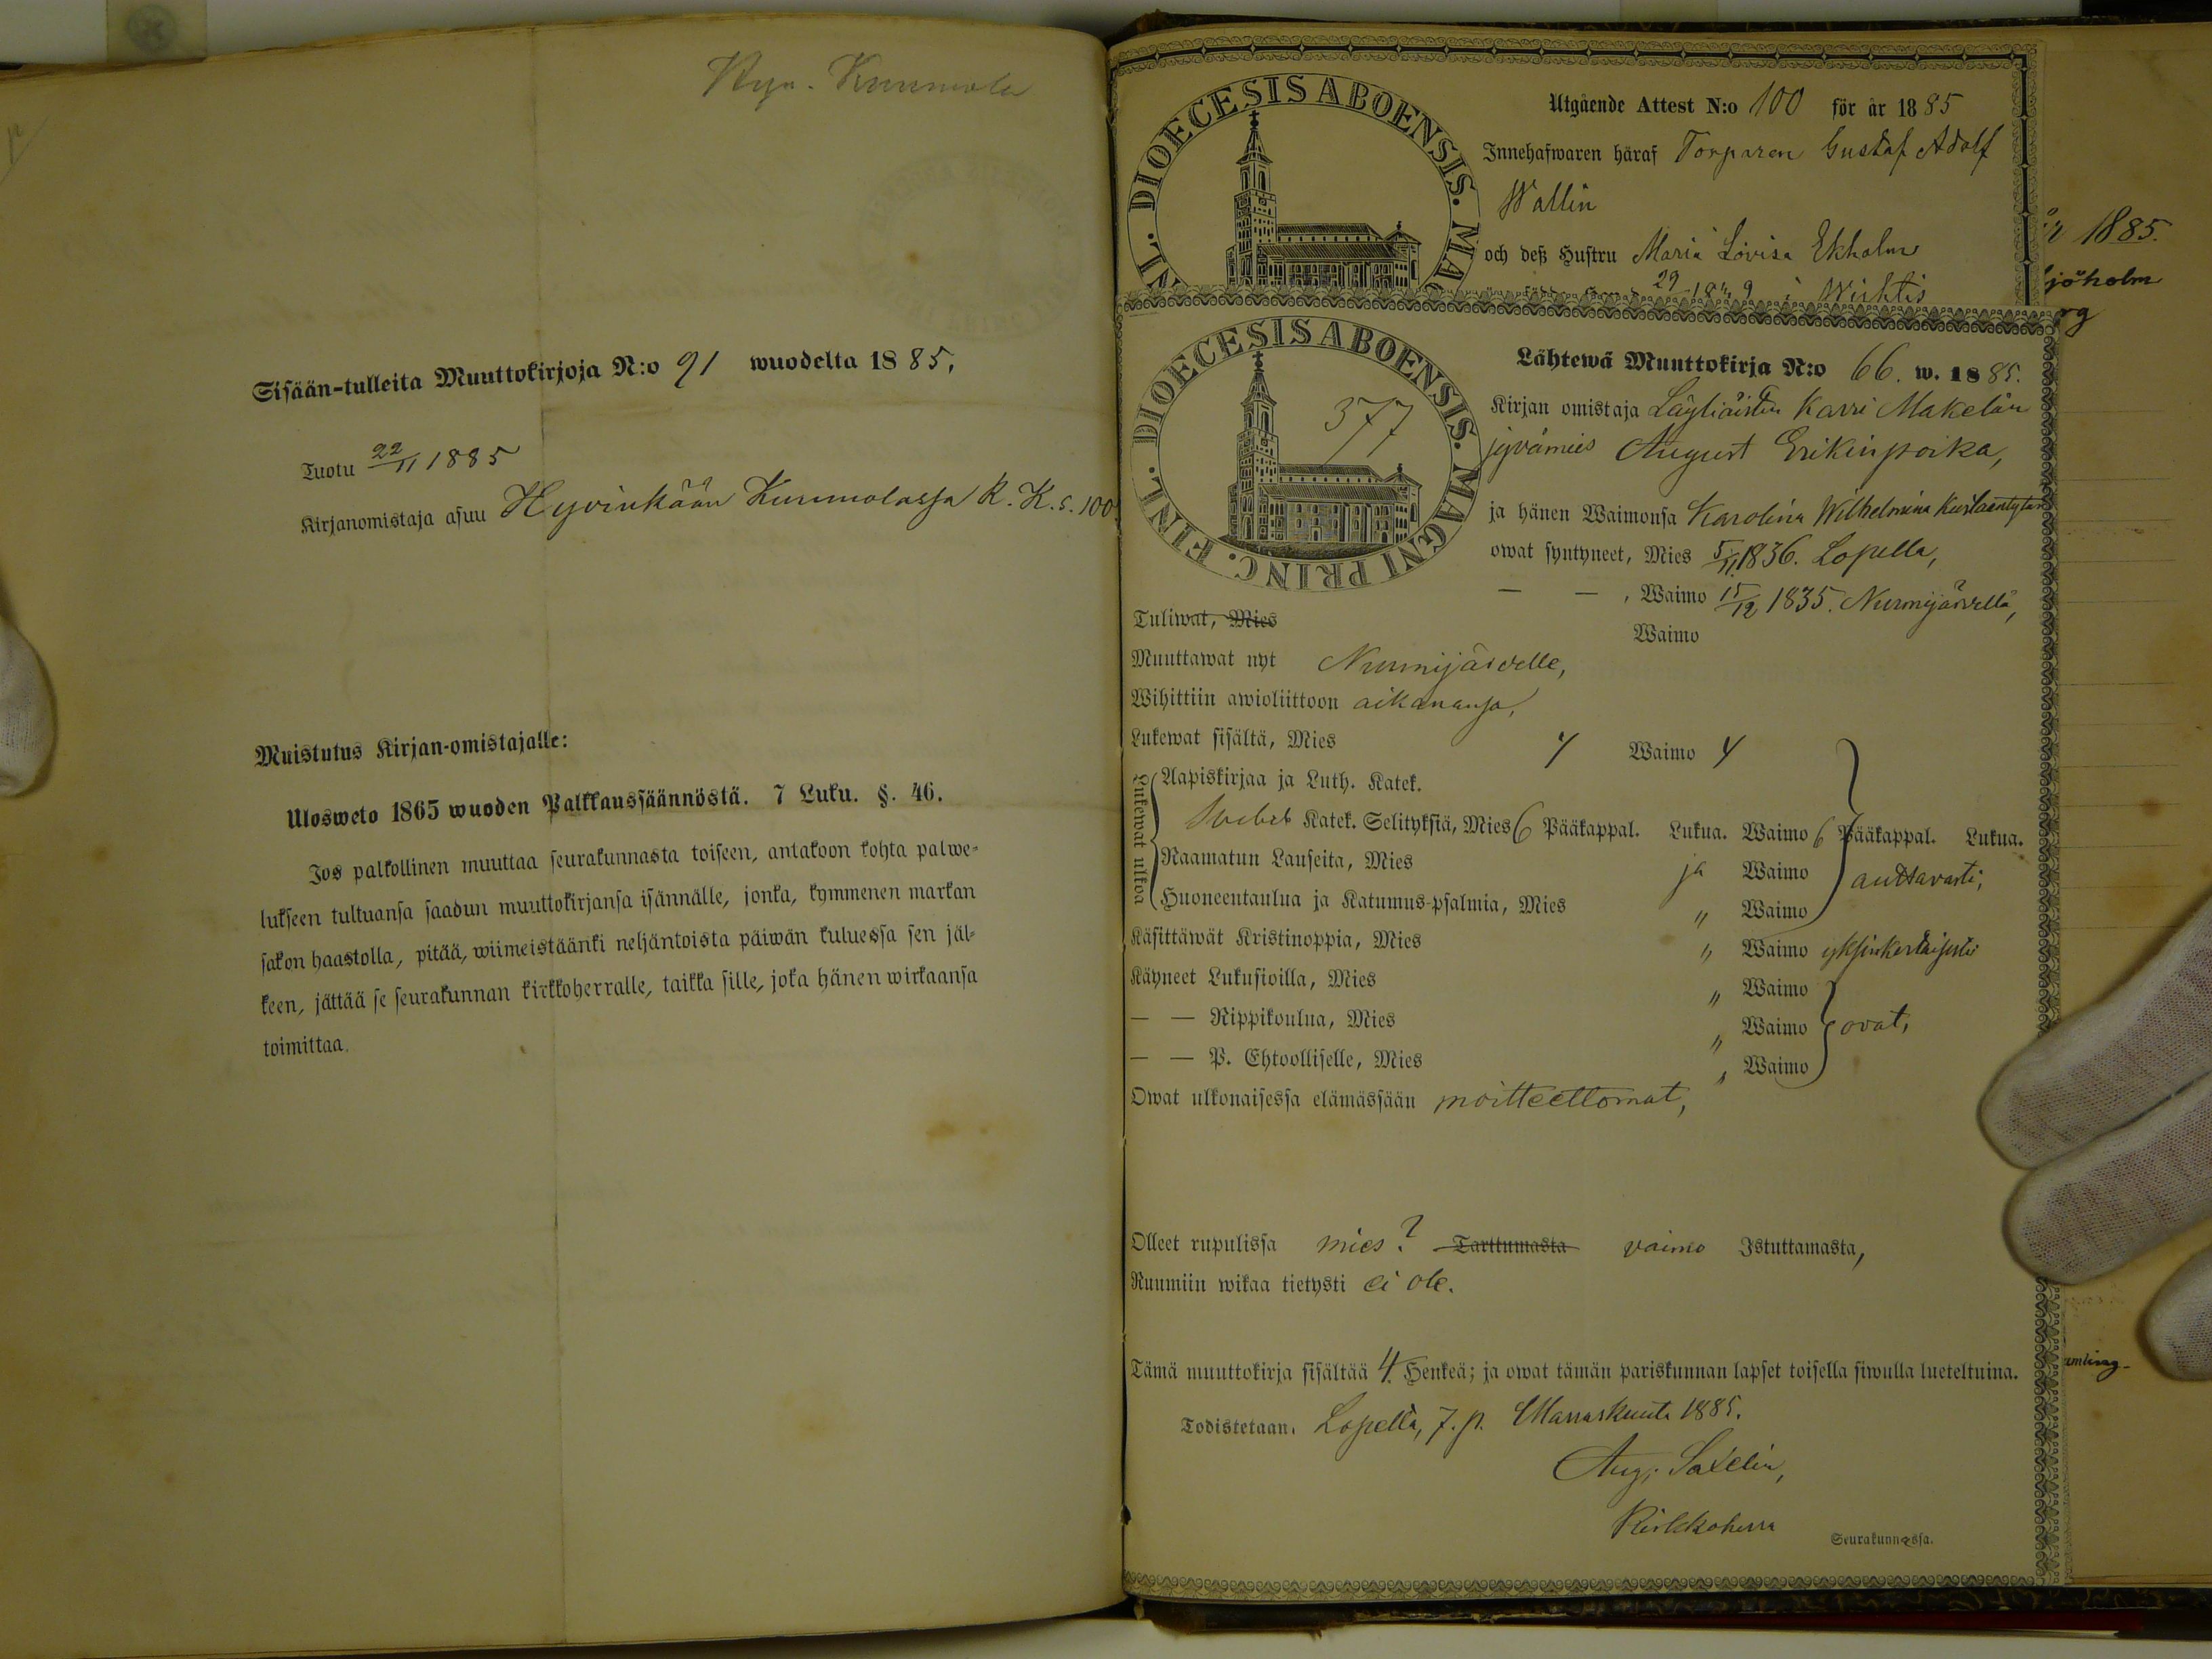 Hyv. Kummola
Sisään-tulleita Muuttokirjoja N:o 91 wuodelta 1885.
Tuotu 22/11 1885
Kirjanomistaja asuu Hyvinkään Kummolassa R. K. s. 100.
Muistutus Kirjan-omistajalle:
Ulosweto 1865 wuoden Palkkaussäännöstä. 7 Luku. §. 46.
Jos palkollinen muuttaa seurakunnasta toiseen, antakoon kohta palwe-
lukseen tultuansa saadun muuttokirjansa isännälle, jonka, kymmenen markan
sakon haastolla, pitää, wiimeistäänki neljäntoista päiwän kuluessa sen jäl-
keen, jättää se seurakunnan kirkkoherralle, taikka sille, joka hänen wirkaansa
toimittaa.
DIOECESIS ABOENSIS. MA
Utgående Attest N:o 100 för år 1885
Innehafwaren häraf Torparen Gustaf Adolf
Wallin
och deß Hustru Maria Lovisa Ekholm
29 Wichtis
1885.
jöholm
rg
FINL. DIOECESIS ABOENSIS. MAGNI PRINC.
377
Lähtewä Muuttokirja N:o 66. w. 1885.
Kirjan omistaja Läyliäisten Karri Makelän
jyvämies August Erikinpoika,
ja hänen Waimonsa Karolina Wilhelmina Kustaantytär
owat syntyneet, Mies 5/11 1836. Lopella,
— — , Waimo 15/12 1835. Nurmijärvellä,
Tuliwat, Mies
Waimo
Muuttawat nyt Nurmijärvelle,
Wihittiin awioliittoon aikananssa,
Lukewat sisältä, Mies Y Waimo Y
Lukewat ulkoa
Aapiskirjaa ja Luth. Katek.
Svebel Katek. Selityksiä, Mies 6 Pääkappal. Lukua. Waimo 6 Pääkappal. Lukua.
Raamatun Lauseita, Mies ja Waimo auttavasti,
Huoneentaulua ja Katumus-psalmia, Mies " Waimo
Käsittäwät Kristinoppia, Mies " Waimo yksinkertaisesti
Käyneet Lukusioilla, Mies " Waimo
— — Rippikoulua, Mies " Waimo ovat,
— — P. Ehtoolliselle, Mies " Waimo
Owat ulkonaisessa elämässään moitteettomat,
Olleet rupulissa mies? Tarttumasta vaimo Istuttamasta,
Ruumiin wikaa tietysti ei ole.
Tämä muuttokirja sisältää 4. Henkeä; ja owat tämän pariskunnan lapset toisella siwulla lueteltuina.
Todistetaan. Lopella, 7. p. Marraskuuta 1885.
Aug. Saxelin,
Kirkkoherra
Seurakunnassa.